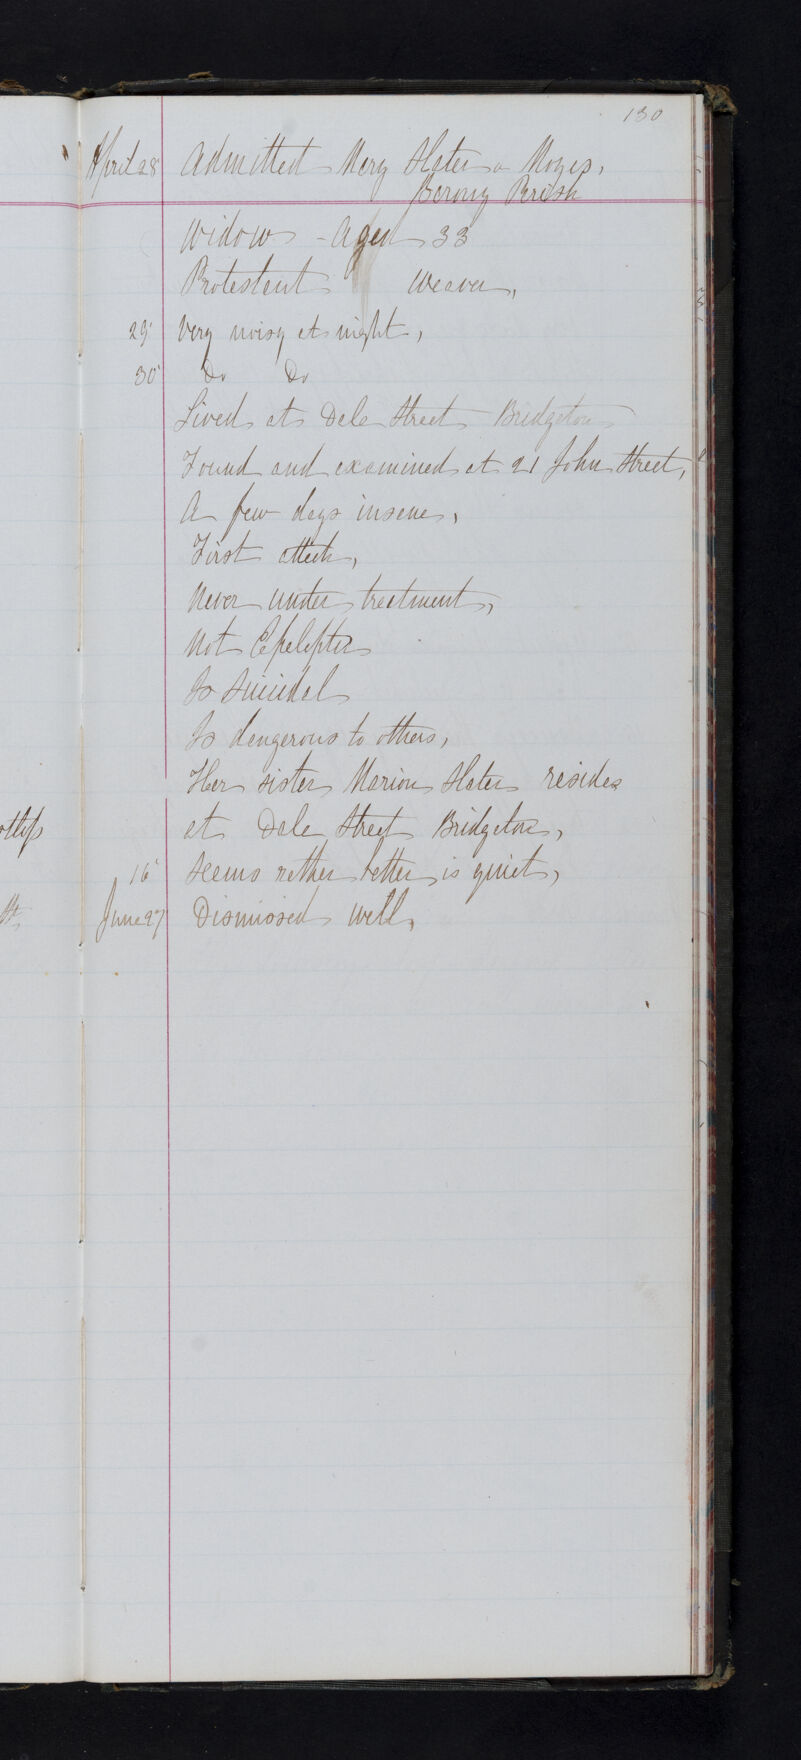 130
April 28 Admitted Mary Slater or Moyes,
Barony Parish
Widow - Aged 33
Protestant Weaver,
29 Very noisy at night,
30 Do Do
Lived at Dale Street Bridgeton
Found and examined at 21 John Street,
A few days insane,
First attack,
Never under treatment,
Not Epeleptic
Is Suicidal
Is dangerous to others,
Her sister Marion Slater resides
at Dale Street Bridgeton,
16 Seems rather better is quiet,
June 27 Dismissed well,